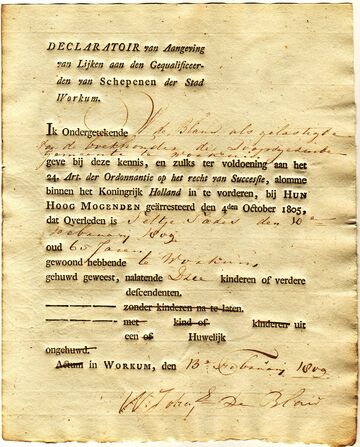 DECLARATOIR van Aangeving
van Lijken aan den Gequalificeer-
den van Schepenen der Stad
Workum.
Ik Ondergetekende W de Blauw als gelastigde
van de boekhouder der
geve bij deze kennis, en zulks ter voldoening aan het
24. Art. der Ordonnantie op het recht van Successie, alomme
binnen het Koningrijk Holland in te vorderen, bij Hun
Hoog Mogenden geärresteerd den 4den October 1805,
dat Overleden is den 10e
February 1809
oud 60 Jaren
gewoond hebbende te Workum
gehuwd geweest, nalatende Drie kinderen of verdere
descendenten.
zonder kinderen na te laten.
met kind of kinderen uit
een of Huwelijk
ongehuwd.
Actum in Workum, den 13e February 1809
W. de Blauw